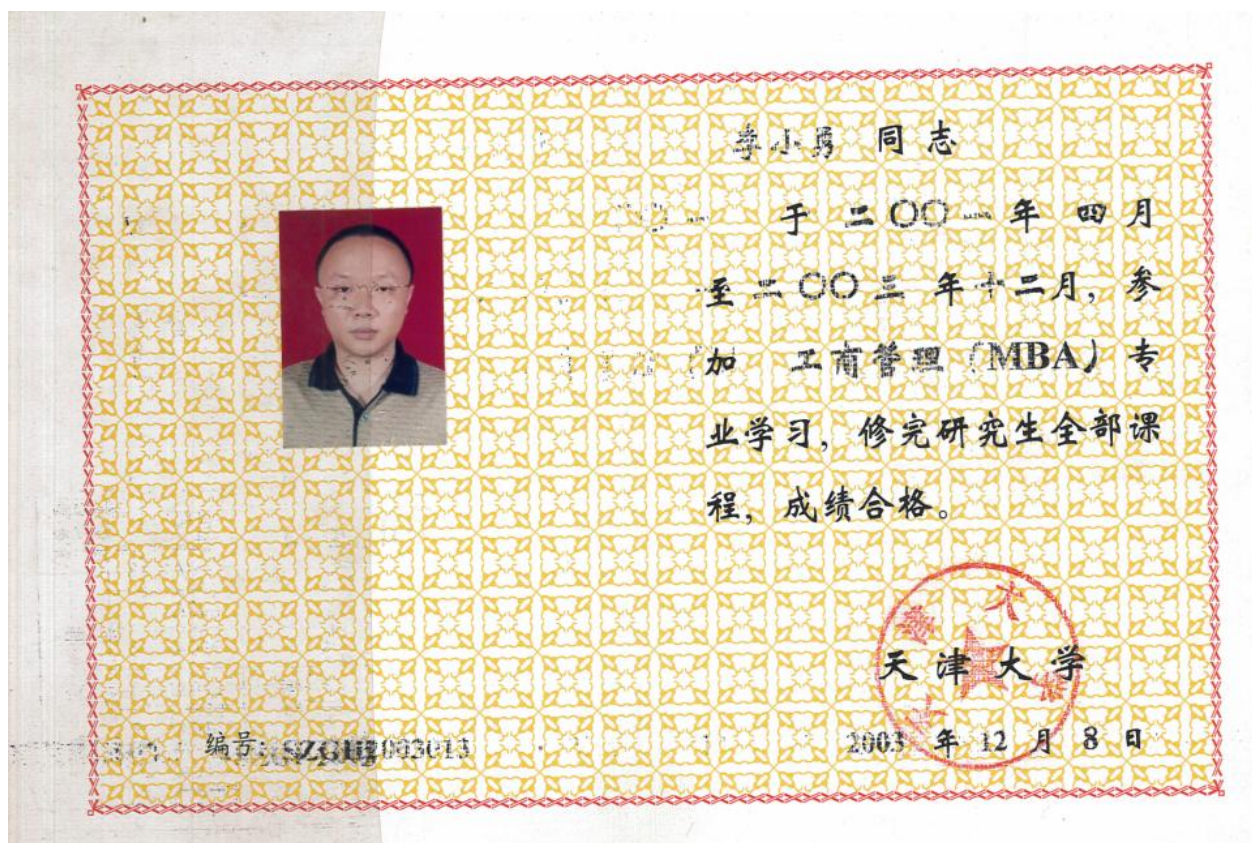 李小勇 同志
于 二〇〇一 年 四月
至二〇〇三 年十二月，参
加 工商管理（MBA）专
业学习，修完研究生全部课
程，成绩合格。
天津大学
天津大学
2003 年 12 月 8 日
编号